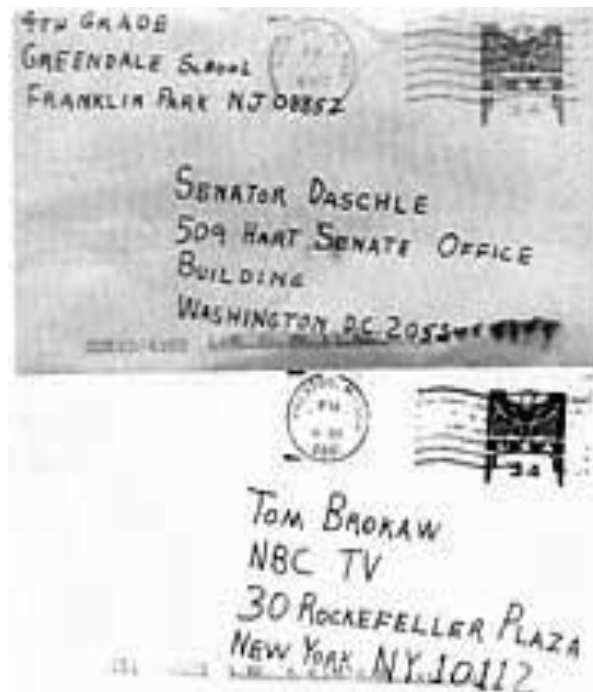 4TH GRADE
GREENDALE SCHOOL
FRANKLIN PARK NJ 08852
SENATOR DASCHLE
509 HART SENATE OFFICE
BUILDING
WASHINGTON D.C. 205
34
TOM BROKAW
NBC TV
30 ROCKEFELLER PLAZA
NEW YORK NY 10112